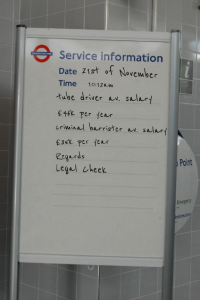 Service Information
Date 21st of November
Time 10:12am
tube driver av. salary
£45k per year
criminal barrister av. salary
£36k per year
Regards
Legal Cheek
Point